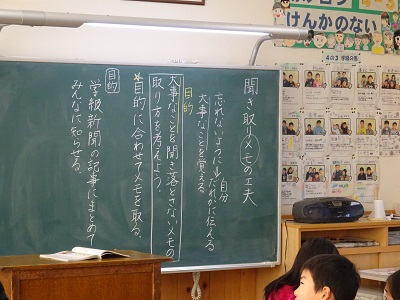 聞き取りメモの工夫
忘れないように
自分
だれかに伝える
大事なことを覚える
目的
大事なことを聞き落とさないメモの
取り方を考えよう。
☆目的に合わせてメモを取る。
目的
学級新聞の記事にまとめて
みんなに知らせる。
けんかのない